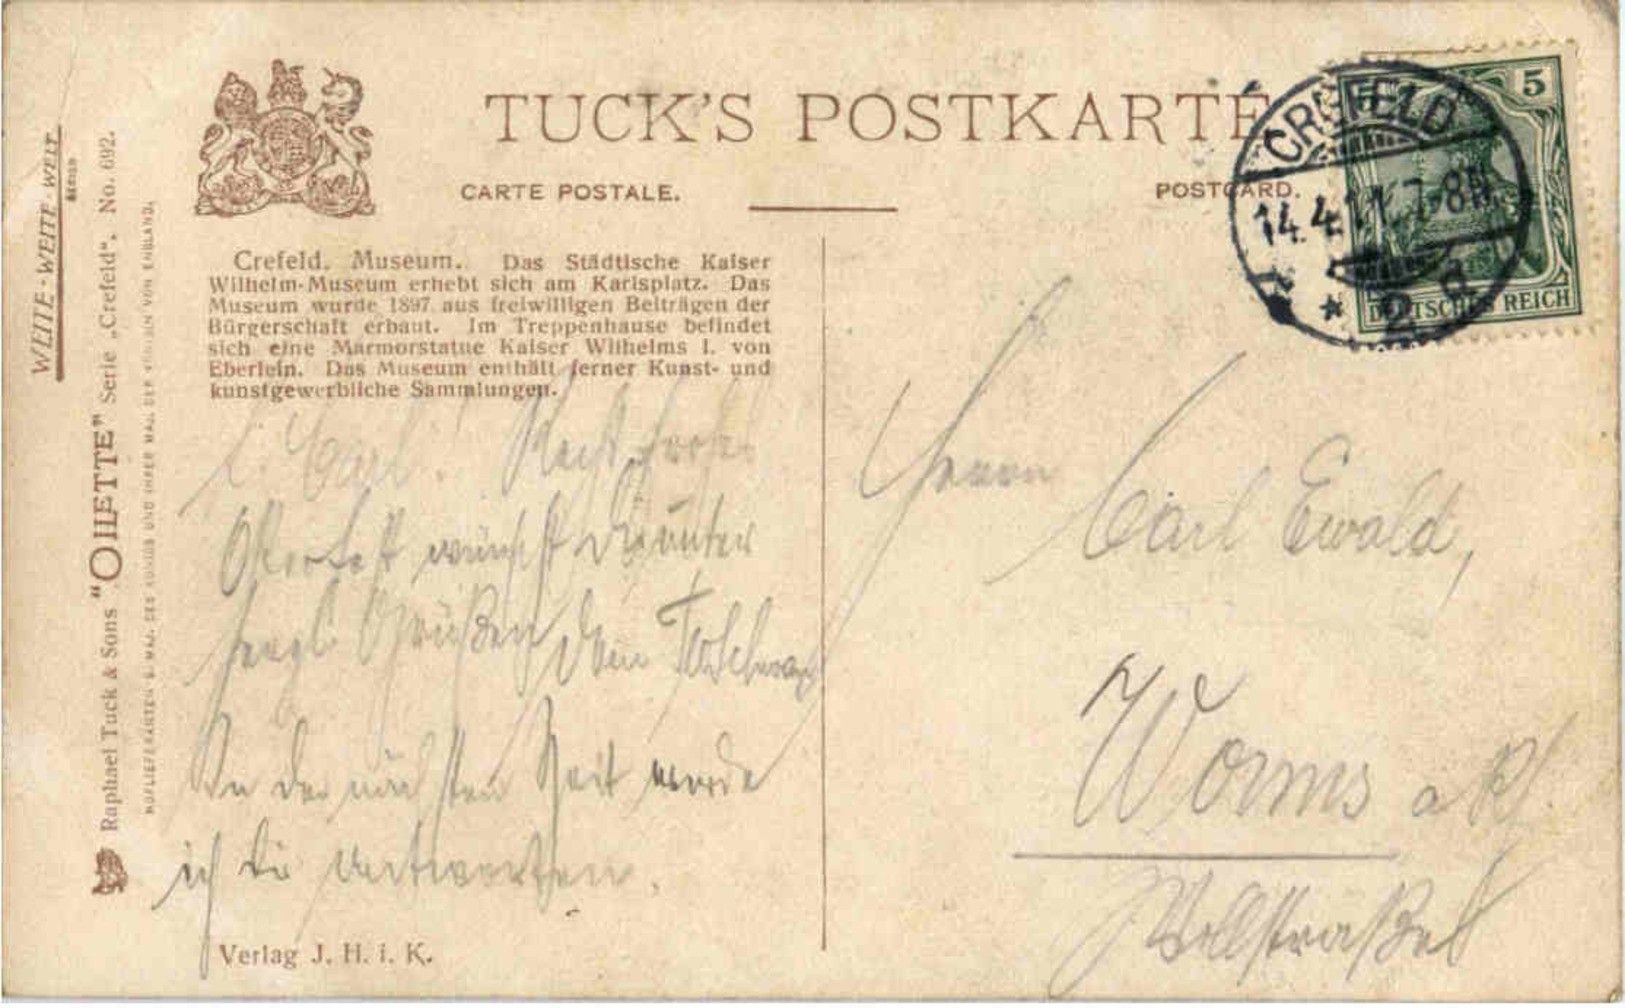 TUCK'S POSTKARTE
CARTE POSTALE.
POSTCARD.
CREFELD
14.4.11.7-8N
* 2 a
5
DEUTSCHES REICH
WELTE-WEITE-WELT
Raphael Tuck & Sons "OILETTE" Serie „Crefeld“, No. 692.
HOFLIEFERANTEN S. MAJ. DES KÖNIGS UND IHRER MAJ. DER KÖNIGIN VON ENGLAND.
Crefeld. Museum. Das Städtische Kaiser
Wilhelm-Museum erhebt sich am Karlsplatz. Das
Museum wurde 1897 aus freiwilligen Beiträgen der
Bürgerschaft erbaut. Im Treppenhause befindet
sich eine Marmorstatue Kaiser Wilhelms I. von
Eberlein. Das Museum enthält ferner Kunst- und
kunstgewerbliche Sammlungen.
l. Carl! Recht frohes
Osterfest wünscht Dir unter
herzl. Grüßen Dein
In der nächsten Zeit werde
ich Dir antworten.
Verlag J. H. i. K.
Herrn
Carl Ewald,
Worms a Rh.